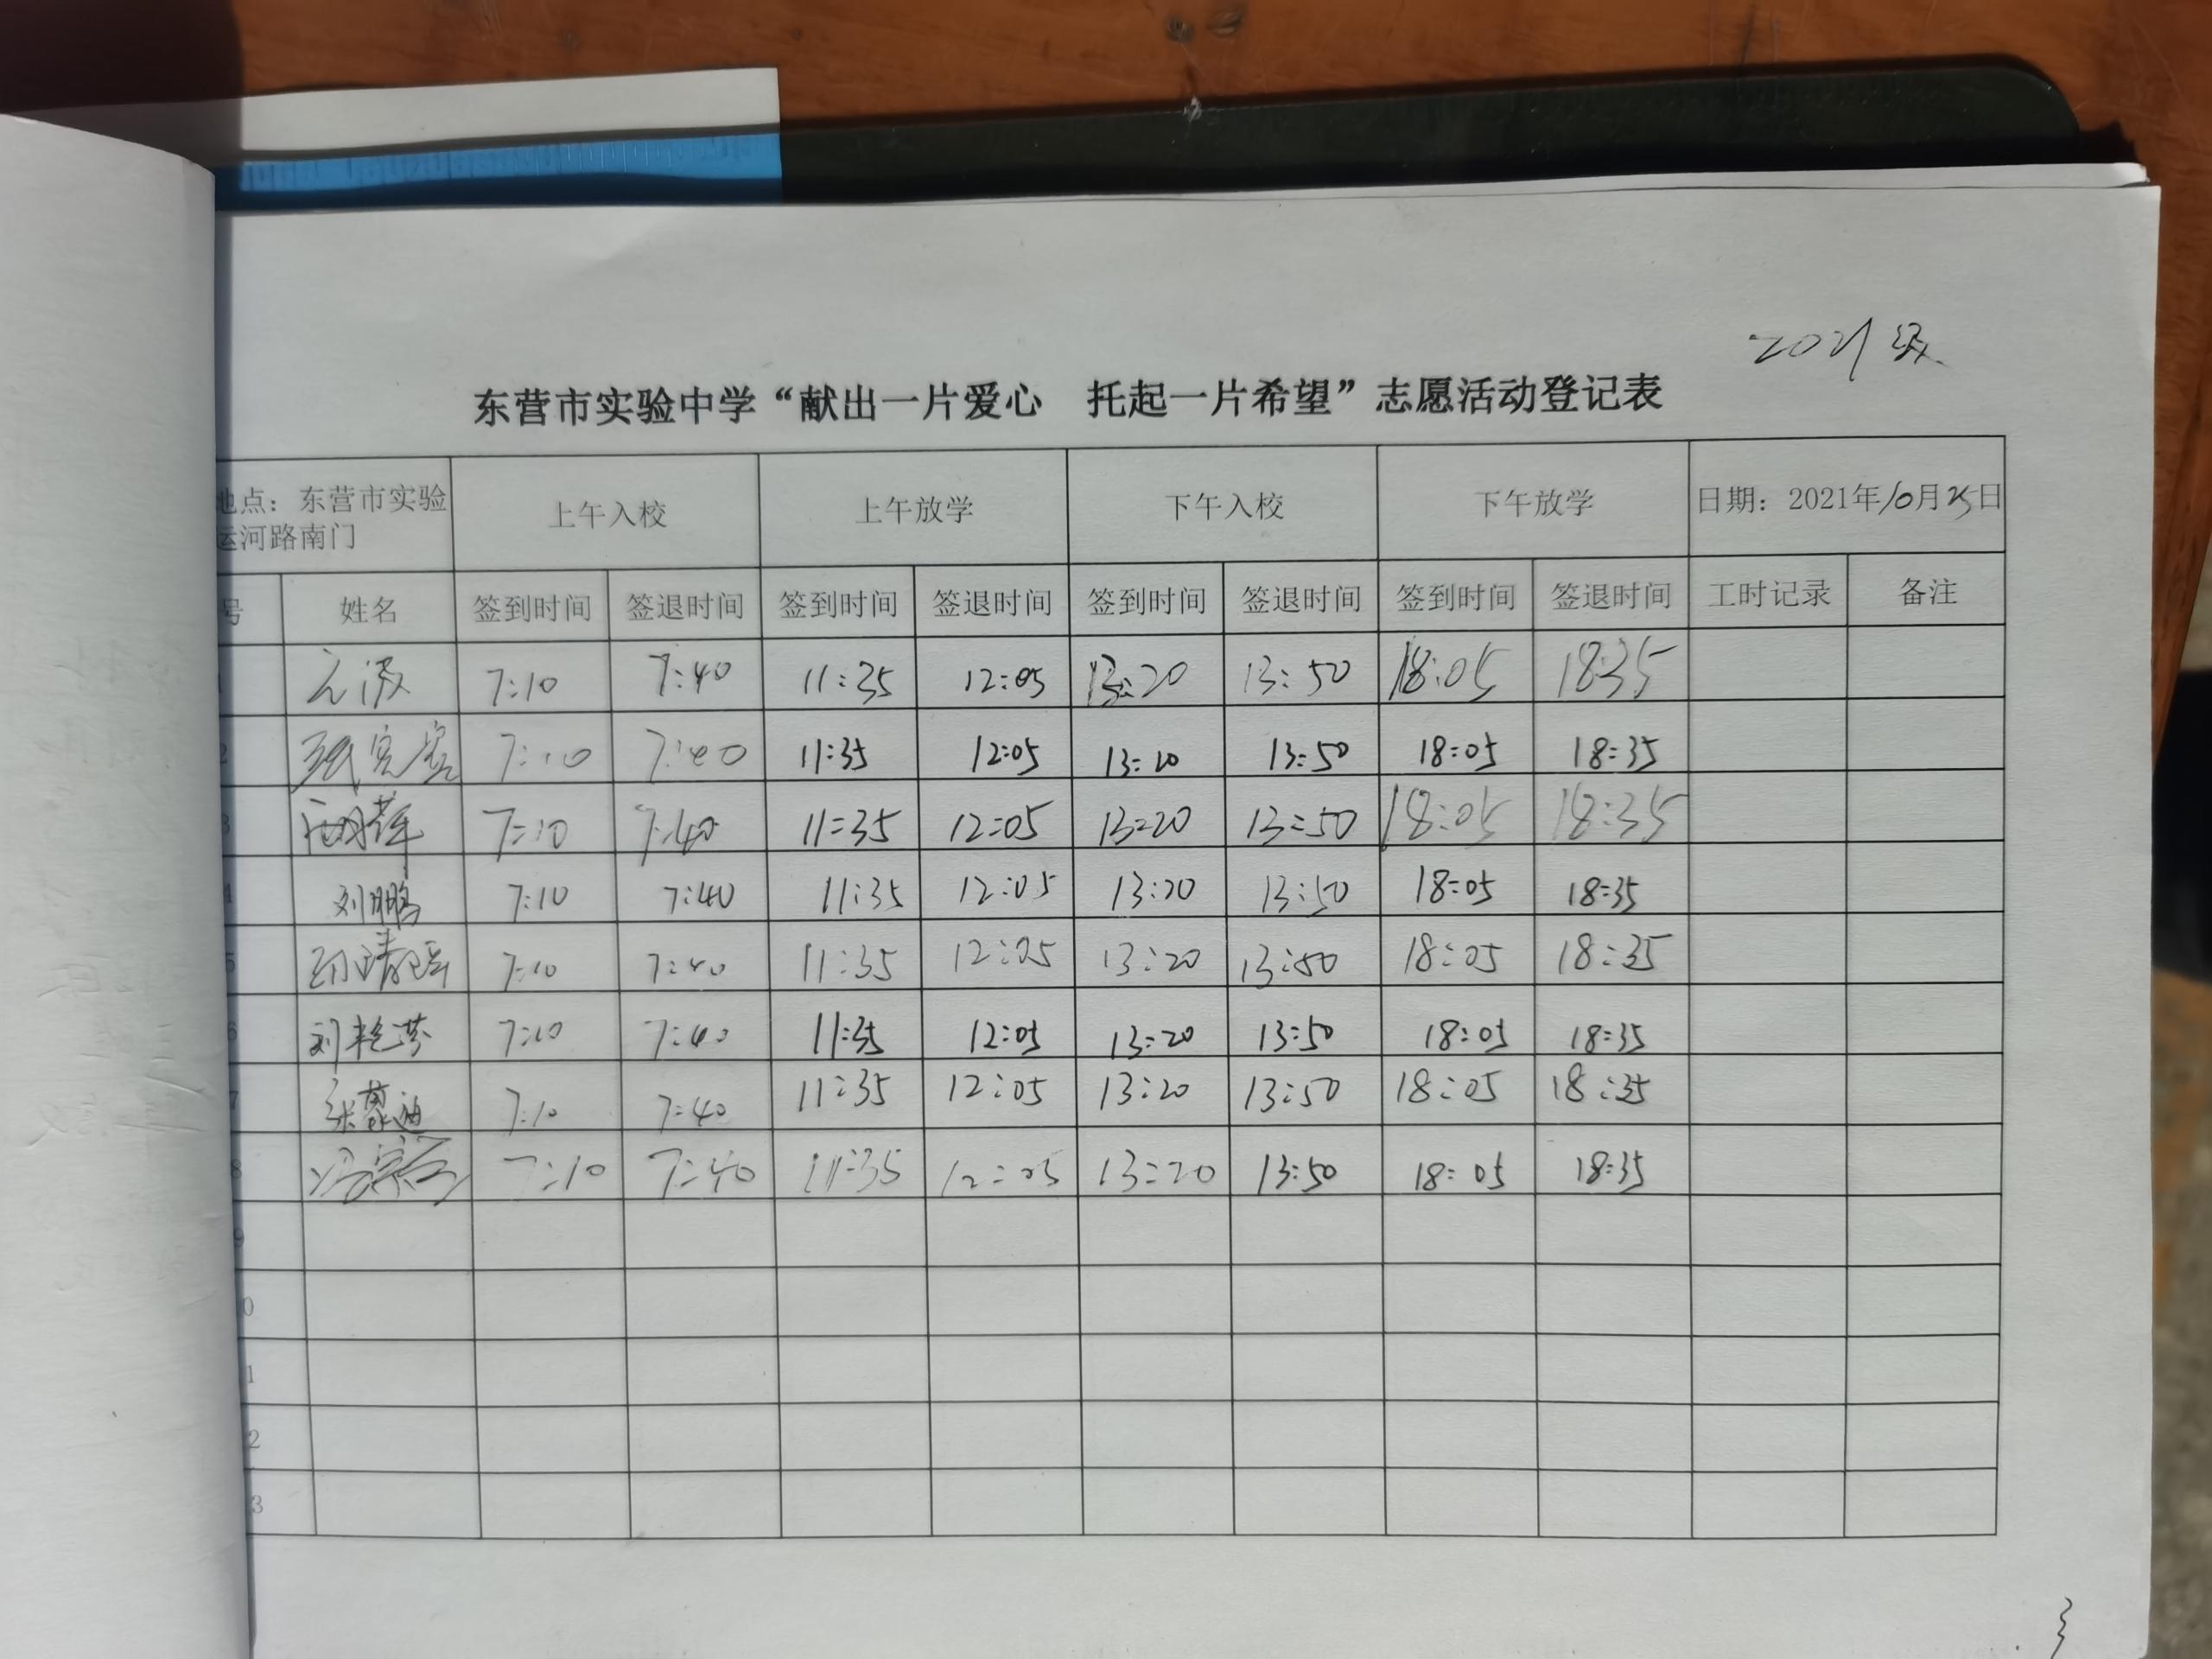 2021级
东营市实验中学“献出一片爱心 托起一片希望”志愿活动登记表
地点：东营市实验 上午入校 上午放学 下午入校 下午放学 日期：2021年10月25日
运河路南门
号 姓名 签到时间 签退时间 签到时间 签退时间 签到时间 签退时间 签到时间 签退时间 工时记录 备注
1 7:10 7:40 11:35 12:05 13:20 13:50 18:05 18:35
2 7:10 7:40 11:35 12:05 13:20 13:50 18:05 18:35
3 7:10 7:40 11:35 12:05 13:20 13:50 18:05 18:35
4 刘鹏 7:10 7:40 11:35 12:05 13:20 13:50 18:05 18:35
5 7:10 7:40 11:35 12:05 13:20 13:50 18:05 18:35
6 刘艳芬 7:10 7:40 11:35 12:05 13:20 13:50 18:05 18:35
7 张蒙迪 7:10 7:40 11:35 12:05 13:20 13:50 18:05 18:35
8 7:10 7:40 11:35 12:05 13:20 13:50 18:05 18:35
9
0
1
2
3